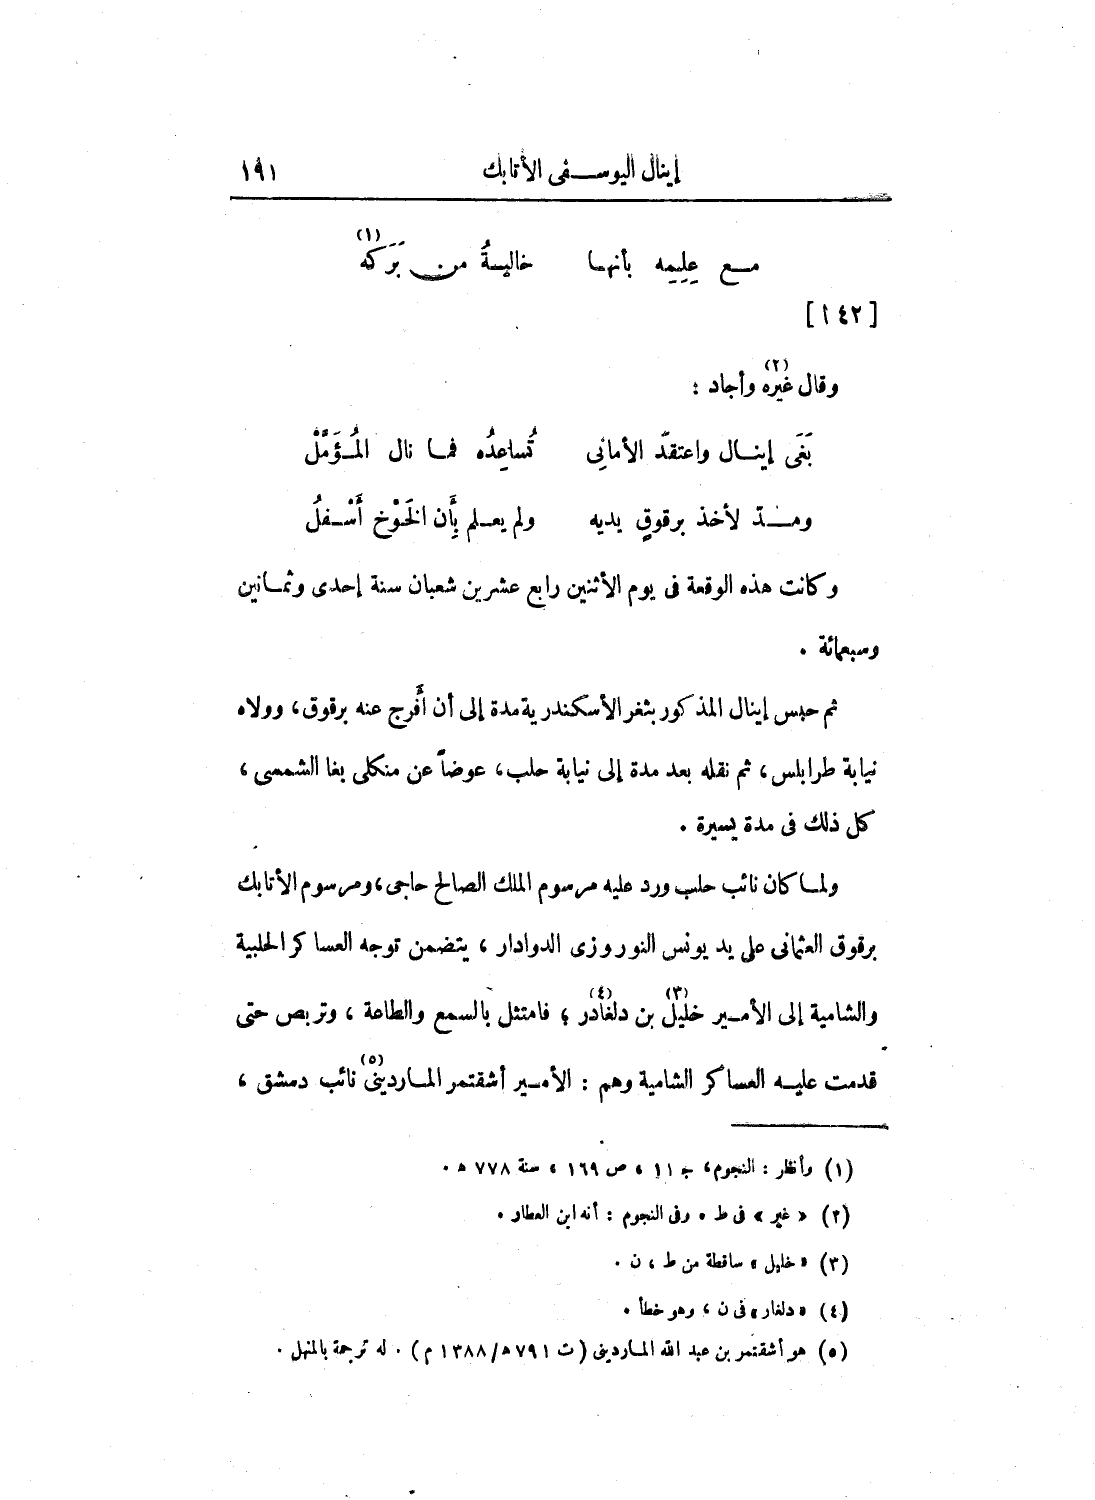 إينال اليوســفى الأتابك ١٩١
مـع عِلِيمِه بأنهـا خاليـةُ من بَرَكه (١)
[١٤٢ أ]
وقال غيره (٢) وأجاد :
بَغَى إينـال واعتقدّ الأمانِى تُساعِدُه فمـا نال المُـؤَمَّلْ
ومــدّ لأخذ برقوقٍ يديه ولم يعـلم بِأَن الخَوْخ أَسْـفلُ
وكانت هذه الوقعة فى يوم الأثنين رابع عشرين شعبان سنة إحدى وثمـانين
وسبعمائة .
ثم حبس إينال المذكور بثغر الأسكندرية مدة إلى أن أَفرج عنه برقوق، وولاه
نيابة طرابلس، ثم نقله بعد مدة إلى نيابة حلب، عوضاً عن منكلى بغا الشمسى،
كل ذلك فى مدة يسيرة .
ولمـا كان نائب حلب ورد عليه مرسوم الملك الصالح حاجى، ومرسوم الأتابك
برقوق العثمانى على يد يونس النوروزى الدوادار ، يتضمن توجه العساكر الحلبية
والشامية إلى الأمـير خليل (٣) بن دلغادر (٤) ؛ فامتثل بالسمع والطاعة ، وتربص حتى
قدمت عليـه العساكر الشامية وهم : الأمـير أشقتمر المـاردينى (٥) نائب دمشق ،
(١) وأنظر : النجوم، جـ ١١ ، ص ١٦٩ ، سنة ٧٧٨ هـ .
(٢) « غير » فى ط . وفى النجوم : أنه ابن العطار .
(٣) « خليل » ساقطة من ط ، ن .
(٤) « دلغار » فى ن ، وهو خطأ .
(٥) هو أشقتمر بن عبد الله المـاردينى (ت ٧٩١ هـ/ ١٣٨٨ م) . له ترجمة بالمنهل .